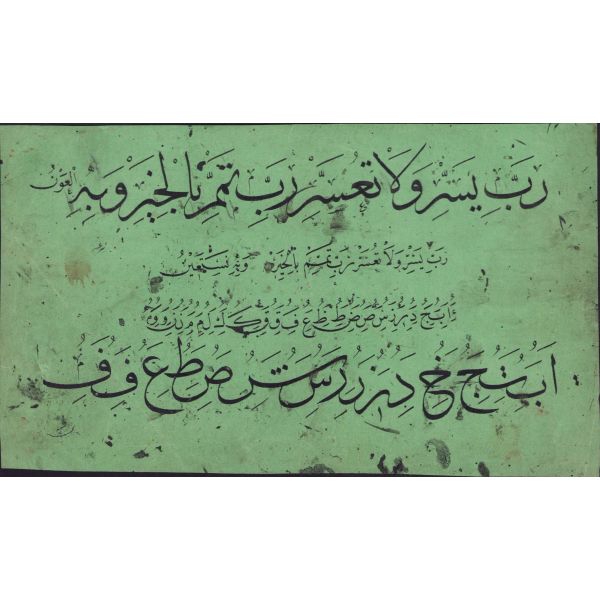 رَبِّ يَسِّرْ وَلَا تُعَسِّرْ رَبِّ تَمِّمْ بِالْخَيْرِ وَبِهِ الْعَوْنُ
رَبِّ يَسِّرْ وَلَا تُعَسِّرْ رَبِّ تَمِّمْ بِالْخَيْرِ وَبِهِ نَسْتَعِينُ
ا ب ت ج د ر ز س ص ط ع ف ق ك ل م ن و ه
ا ب ت ج خ د ر ز س ش ص ط ع ف ق